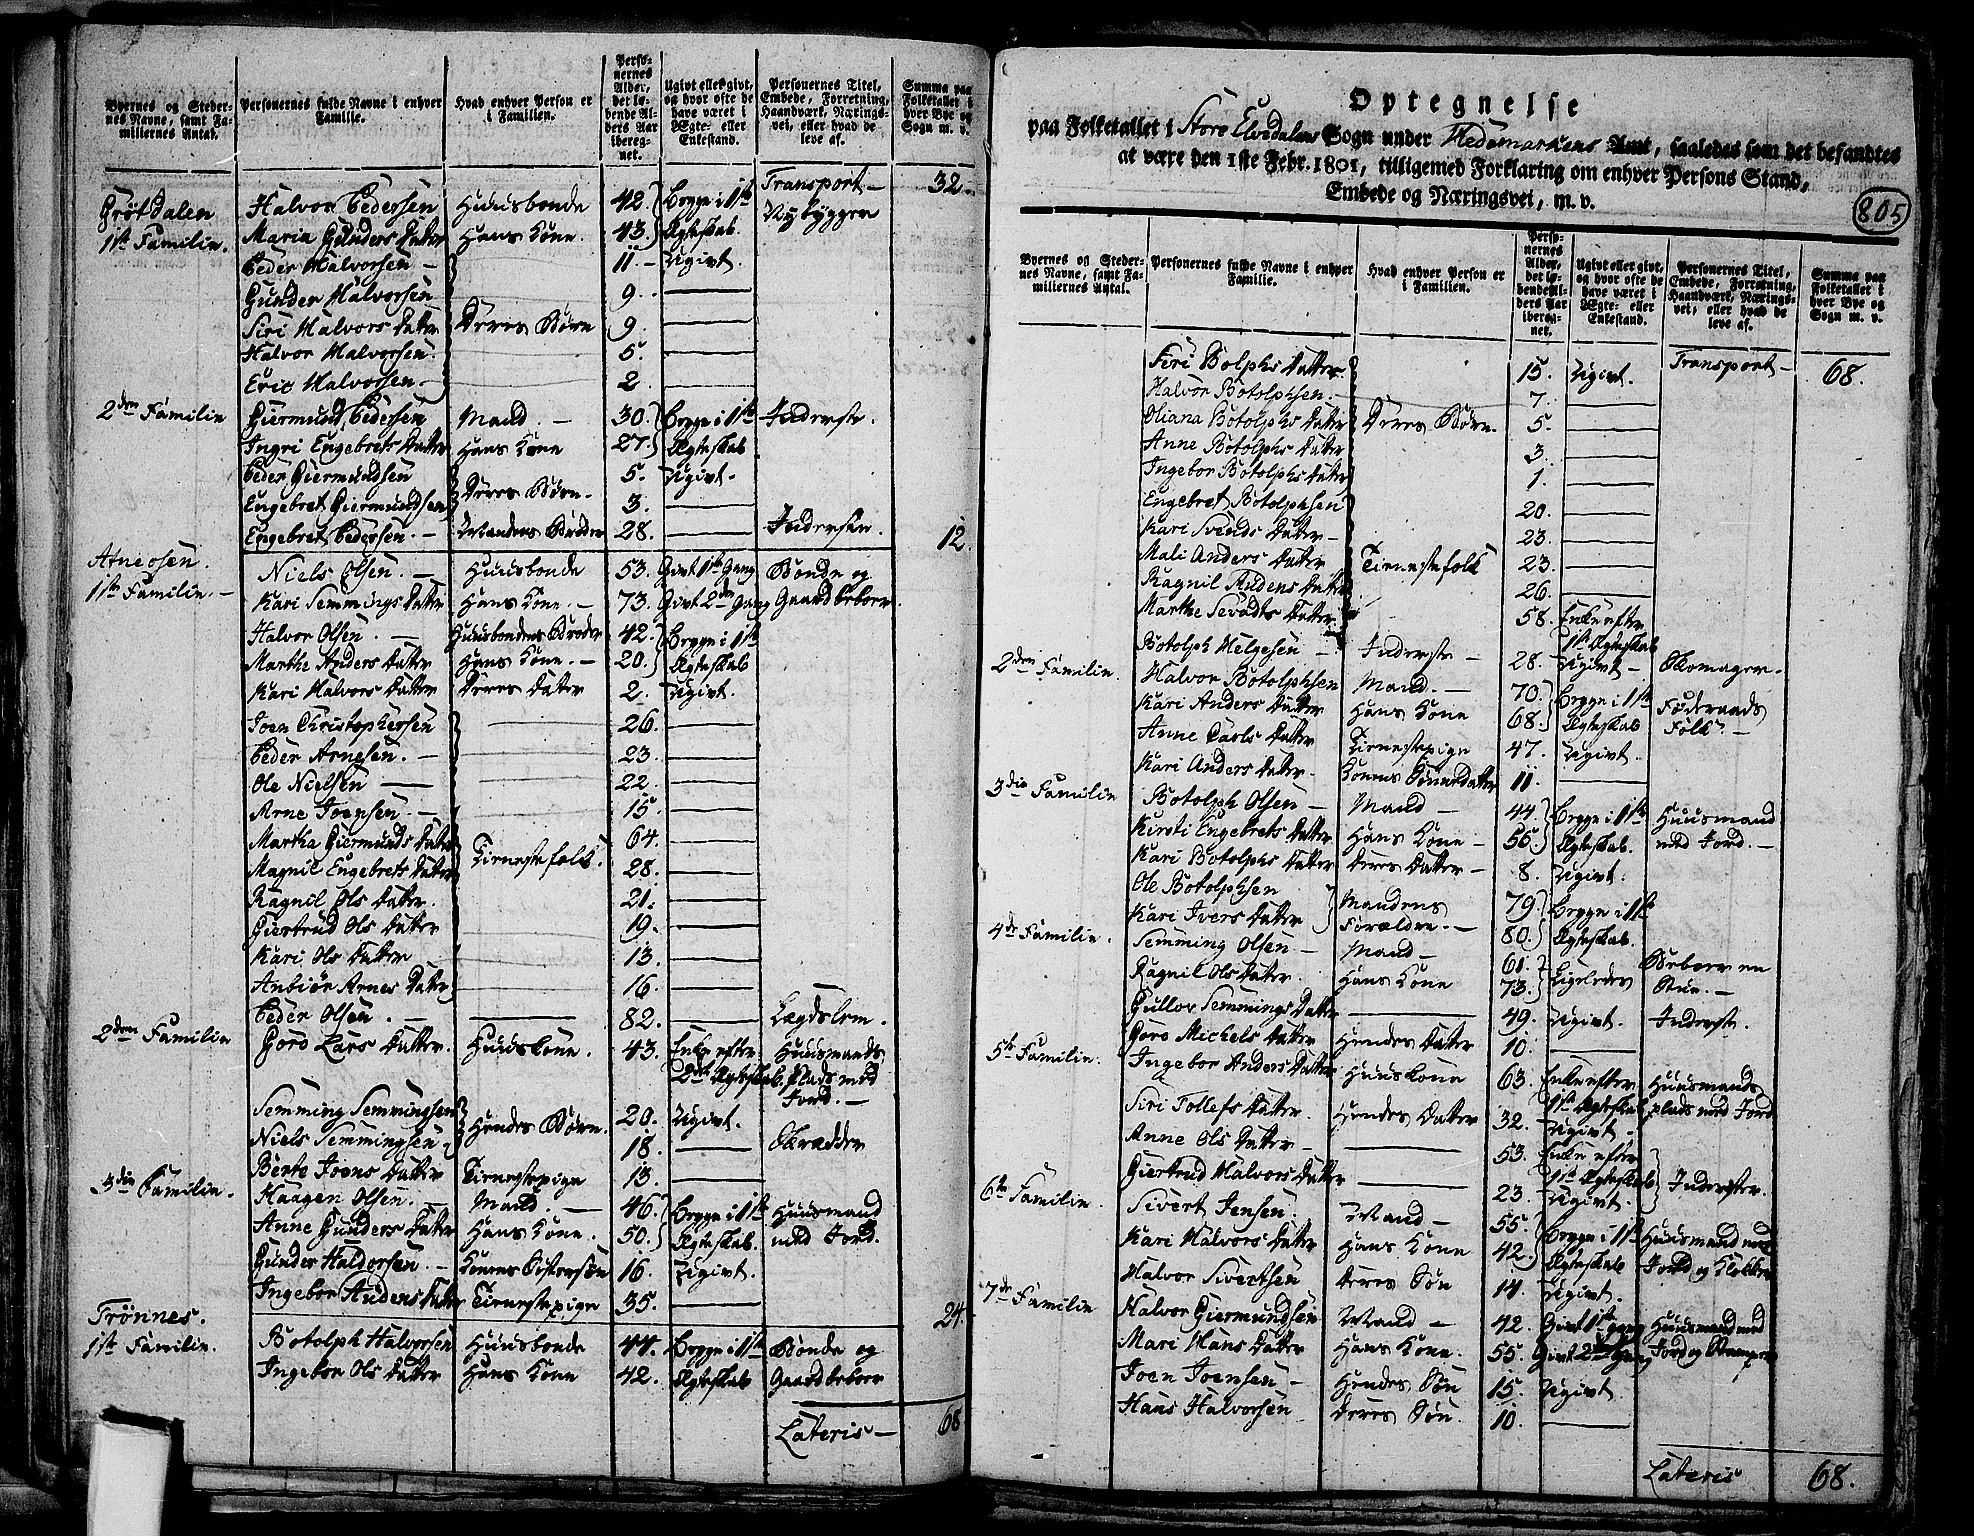 Byernes og Steder-
nes Navne, samt Fa-
miliernes Antal.
Personernes fulde Navne i enhver
Familie.
Hvad enhver Person er
i Familien.
Perso-
nernes
Alder,
det lø-
bende Al-
ders Aar
iberег-
net.
Ugivt eller givt,
og hvor ofte de
have været i
Ægte- eller
Enkestand.
Personernes Titel,
Embede, Forretning,
Haandværk, Nærings-
vei, eller hvad de
leve af.
Summa paa
Folketallet i
hver Bye og
Sogn m. v.
Transport — 32.
Grötdalen Halvor Pedersen Huusbonde 42. Begge i 1ste Nybygger
1ste Familie. Maria Gunders Datter Hans Kone. 43. Ægteskab.
Peder Halvorsen — 11. — Ugivt.
Gunder Halvorsen 9. —
Siri Halvors Datter Deres Börn 9. —
Halvor Halvorsen. 5. —
Eric Halvorsen. 2. —
2den Familie Giermund Pedersen Mand. — 30. Begge i 1ste Inderste.
Ingri Engebrets Datter Hans Kone 27. Ægteskab
Peder Giermundsen Deres Börn. 5. Ugivt.
Engebret Giermundsen 3. —
Engebret Pedersen. — Mandens Broder 28. — Indersten 12.
Atneosen. Niels Olsen. — Huusbonde 53. Givt 1ste Gang Bonde og
1ste Familie. — Kari Semmings Datter Hans Kone. — 73. Givt 2den Gang Gaardbeboer.
Halvor Olsen. — Huusbondens Broder 42. Begge i 1ste
Marthe Anders Datter Hans Kone. — 20. Ægteskab
Kari Halvors Datter Deres Datter 2. Ugivt.
Joen Christophersen 26. —
Peder Arnesen. — 23. —
Ole Nielsen — 22. —
Arne Joensen. — 15. —
Martha Giermunds Datter Tienestefolk. 64. —
Magnil Engebrets Datter 28. —
Ragnil Ols Datter. 21. —
Giertrud Ols Datter 19. —
Kari Ols Datter — 13. —
Anbiör Arnes Datter 16. —
Peder Olsen. — 82. — Lægdslem.
2den Familie Goro Lars Datter. Huuskone. 43. Enke efter Huusmands
2det Ægteskab. Plads med
Jord. —
Semming Semmingsen Hendes Börn. 20. Ugivt.
Niels Semmingsen 18. — Skrædder
Berte Joens Datter Tienestepige 13. —
3die Familie. Haagen Olsen. — Mand. — 46. Begge i 1ste Huusmand
Anne Gunders Datter Hans Kone. 50. Ægteskab. med Jord.
Gunder Haldorsen. — Konens Söstersön 16. Ugivt.
Ingebor Audens Datter Tienestepige 35. — 24.
Trönnes.
1ste Familie. Botolph Halvorsen Huusbonde 44. Begge i 1ste Bonde og
Ingebor Ols Datter Hans Kone 42. Ægteskab Gaardbeboer
Lateris — 68
Optegnelse
paa Folketallet i Store Elvedalens Sogn under Hedemarkens Amt, saaledes som det befandtes
at være den 1ste Febr. 1801, tilligemed Forklaring om enhver Persons Stand,
Embede og Næringsvei, m. v.
805
Byernes og Steder-
nes Navne, samt Fa-
miliernes Antal.
Personernes fulde Navne i enhver
Familie.
Hvad enhver Person er
i Familien.
Perso-
nernes
Alder,
det lø-
bende Al-
ders Aar
ibereg-
net.
Ugivt eller givt,
og hvor ofte de
have været i
Ægte- eller
Enkestand.
Personernes Titel,
Embede, Forretning,
Haandværk, Nærings-
vei, eller hvad de
leve af.
Summa paa
Folketallet i
hver Bye og
Sogn m. v.
Siri Bolphs Datter 15. Ugivt. Transport — 68.
Halvor Botolphsen. 7. —
Oliana Botolphs Datter Deres Börn. 5. —
Anne Botolphs Datter 3. —
Ingebor Botolphs Datter 1. —
Engebret Botolphsen 20. —
Kari Svends Datter — 23. —
Mali Anders Datter Tienestefolk 23. —
Ragnil Audens Datter 26. —
Marthe Sevadts Datter 58. Enke efter
1ste Ægteskab
Botolph Helgesen — Inderste — 28. Ugivt — Skomager.
2den Familie. Halvor Botolphsen Mand. — 70. Begge i 1ste Föderaads
Kari Anders Datter Hans Kone 68. Ægteskab Folk. —
Anne Carls Datter Tienestepige 47. Ugivt.
Kari Anders Datter. Konens Sönnedatter 11. —
3die Familie Botolph Olsen — Mand — 44. Begge i 1ste Huusmand
Kirsti Engebrets Datter Hans Kone — 50. Ægteskab. med Jord. —
Kari Botolphs Datter Deres Datter — 8. Ugivt.
Ole Botolphsen Mandens 79. Begge i 1ste
Kari Ivers Datter Forældre. — 80. Ægteskab.
4de Familie. Semming Olsen — Mand — 61. Ligeledes Beboer en
Ragnil Ols Datter. Hans Kone 73. Stue. —
Gullov Semmings Datter — 49. Ugivt. Inderste.
Goro Michels Datter Hendes Datter 10. —
5te Familie. Ingebor Anders Datter Huuskone 63. Enke efter Huusmands
1ste Ægteskab plads med Jord
Siri Tollefs Datter. Hendes Datter 32. Ugivt —
Anne Ols Datter — — 53. Enke efter
1ste Ægteskab Inderster.
Giertrud Halvors Datter — 23. Ugivt.
6te Familie. Sivert Jensen. Mand — 55. Begge i 1ste Huusmand med
Kari Halvors Datter Hans Kone 42. Ægteskab Jord og Klokker
Halvor Sivertsen Deres Sön 14. Ugivt.
7de Familie Halvor Giermundsen Mand — 42. Givt 1ste gang Huusmand med
Mari Hans Datter Hans Kone. 55. Givt 2den Gang Jord og
Joen Joensen — Hendes Sön 15. Ugivt
Hans Halvorsen Deres Sön. 10. —
Lateris 68.